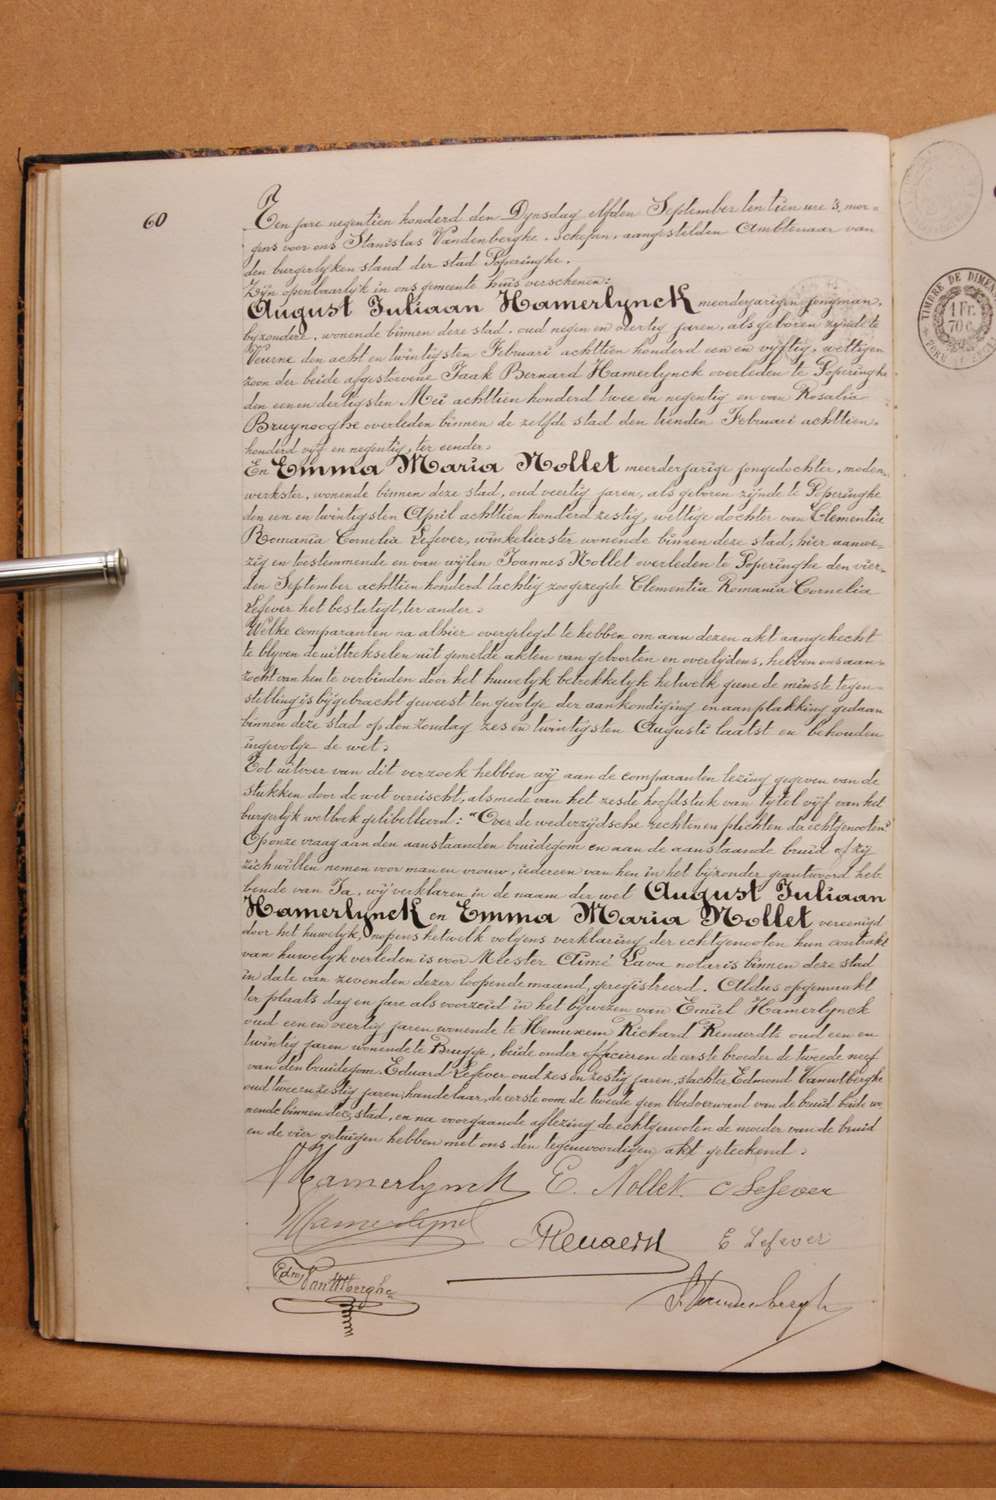 60
Ten jare negentien honderd den Dynsdag elfden September ten tien ure 's mor-
gens voor ons Stanislas Vandenberghe, Schepen, aangestelden Ambtenaar van
den burgerlyken stand der stad Poperinghe.
Zyn openbaarlyk in ons gemeente huis verschenen:
August Juliaan Hamerlynck meerderjarigen jongman,
byzondere, wonende binnen deze stad, oud negen en veertig jaren, als geboren zynde te
Veurne den acht en twintigsten Februari achttien honderd een en vyftig, wettigen
zoon der beide afgestorvene Jaak Bernard Hamerlynck overleden te Poperinghe
den een en dertigsten Mei achttien honderd twee en negentig en van Rosalia
Bruynooghe overleden binnen de zelfde stad den tienden Februari achttien
honderd vyf en negentig, ter eender.
En Emma Maria Nollet meerderjarige jongedochter, moden-
werkster, wonende binnen deze stad, oud veertig jaren, als geboren zynde te Poperinghe
den een en twintigsten April achttien honderd zestig, wettige dochter van Clementia
Romania Cornelia Lefever, winkelierster wonende binnen deze stad, hier aanwe-
zig en toestemmende en van wylen Joannes Nollet overleden te Poperinghe den vier-
den September achttien honderd tachtig zoogezegde Clementia Romania Cornelia
Lefever het bestatigt, ter ander.
Welke comparanten na alhier overgelegd te hebben om aan dezen akt aangehecht
te blyven de uittrekselen uit gemelde akten van geboorten en overlydens, hebben ons aan-
zocht van hen te verbinden door het huwelyk betrekkelyk hetwelk geene de minste tegen-
stelling is bygebracht geweest ten gevolge der aankondiging en aanplakking gedaan
binnen deze stad op den Zondag zes en twintigsten Augusti laatst en behouden
ingevolge de wet.
Tot uitvoer van dit verzoek hebben wy aan de comparanten lezing gegeven van de
stukken door de wet vereischt, alsmede van het zesde hoofdstuk van tytel vyf van het
burgerlyk wetboek gelibelleerd: "Over de wederzydsche rechten en plichten der echtgenooten"
Op onze vraag aan den aanstaanden bruidegom en aan de aanstaande bruid of zy
zich willen nemen voor man en vrouw, iedereen van hen in het byzonder geantwoord heb-
bende van Ja, wy verklaren in de naam der wet August Juliaan
Hamerlynck en Emma Maria Nollet, vereenigd
door het huwelyk, nopens hetwelk volgens verklaring der echtgenooten hun contrakt
van huwelyk verleden is voor Meester Aimé Lava notaris binnen deze stad
in date van zevenden dezer loopende maand, geregistreerd. Aldus opgemaakt
ter plaats dag en jare als voorzeid in het bywezen van Emiel Hamerlynck
oud een en veertig jaren wonende te Hemixem Richard Renaerdts oud een en
twintig jaren wonende te Brugge, beide onder officieren de eerste broeder de tweede neef
van den bruidegom. Eduard Lefever oud zes en zestig jaren, slachter, Edmond Vanuxtberghe
oud twee en zestig jaren, handelaar, de eerste oom de tweede geen bloedverwant van de bruid beide wo-
nende binnen deze stad, en na voorgaande aflezing de echtgenooten de moeder van de bruid
en de vier getuigen hebben met ons den tegenwoordigen akt geteekend.
A Hamerlynck E. Nollet C Lefever
Hamerlynck Renaerdt E Lefever
Edm
S Vandenberghe
TIMBRE DE DIMEN
1 Fr.
70 c.